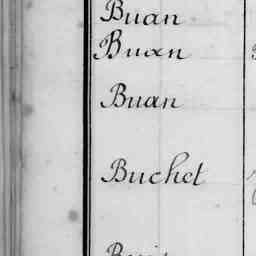 Buan
Buan
Buan
Buchet